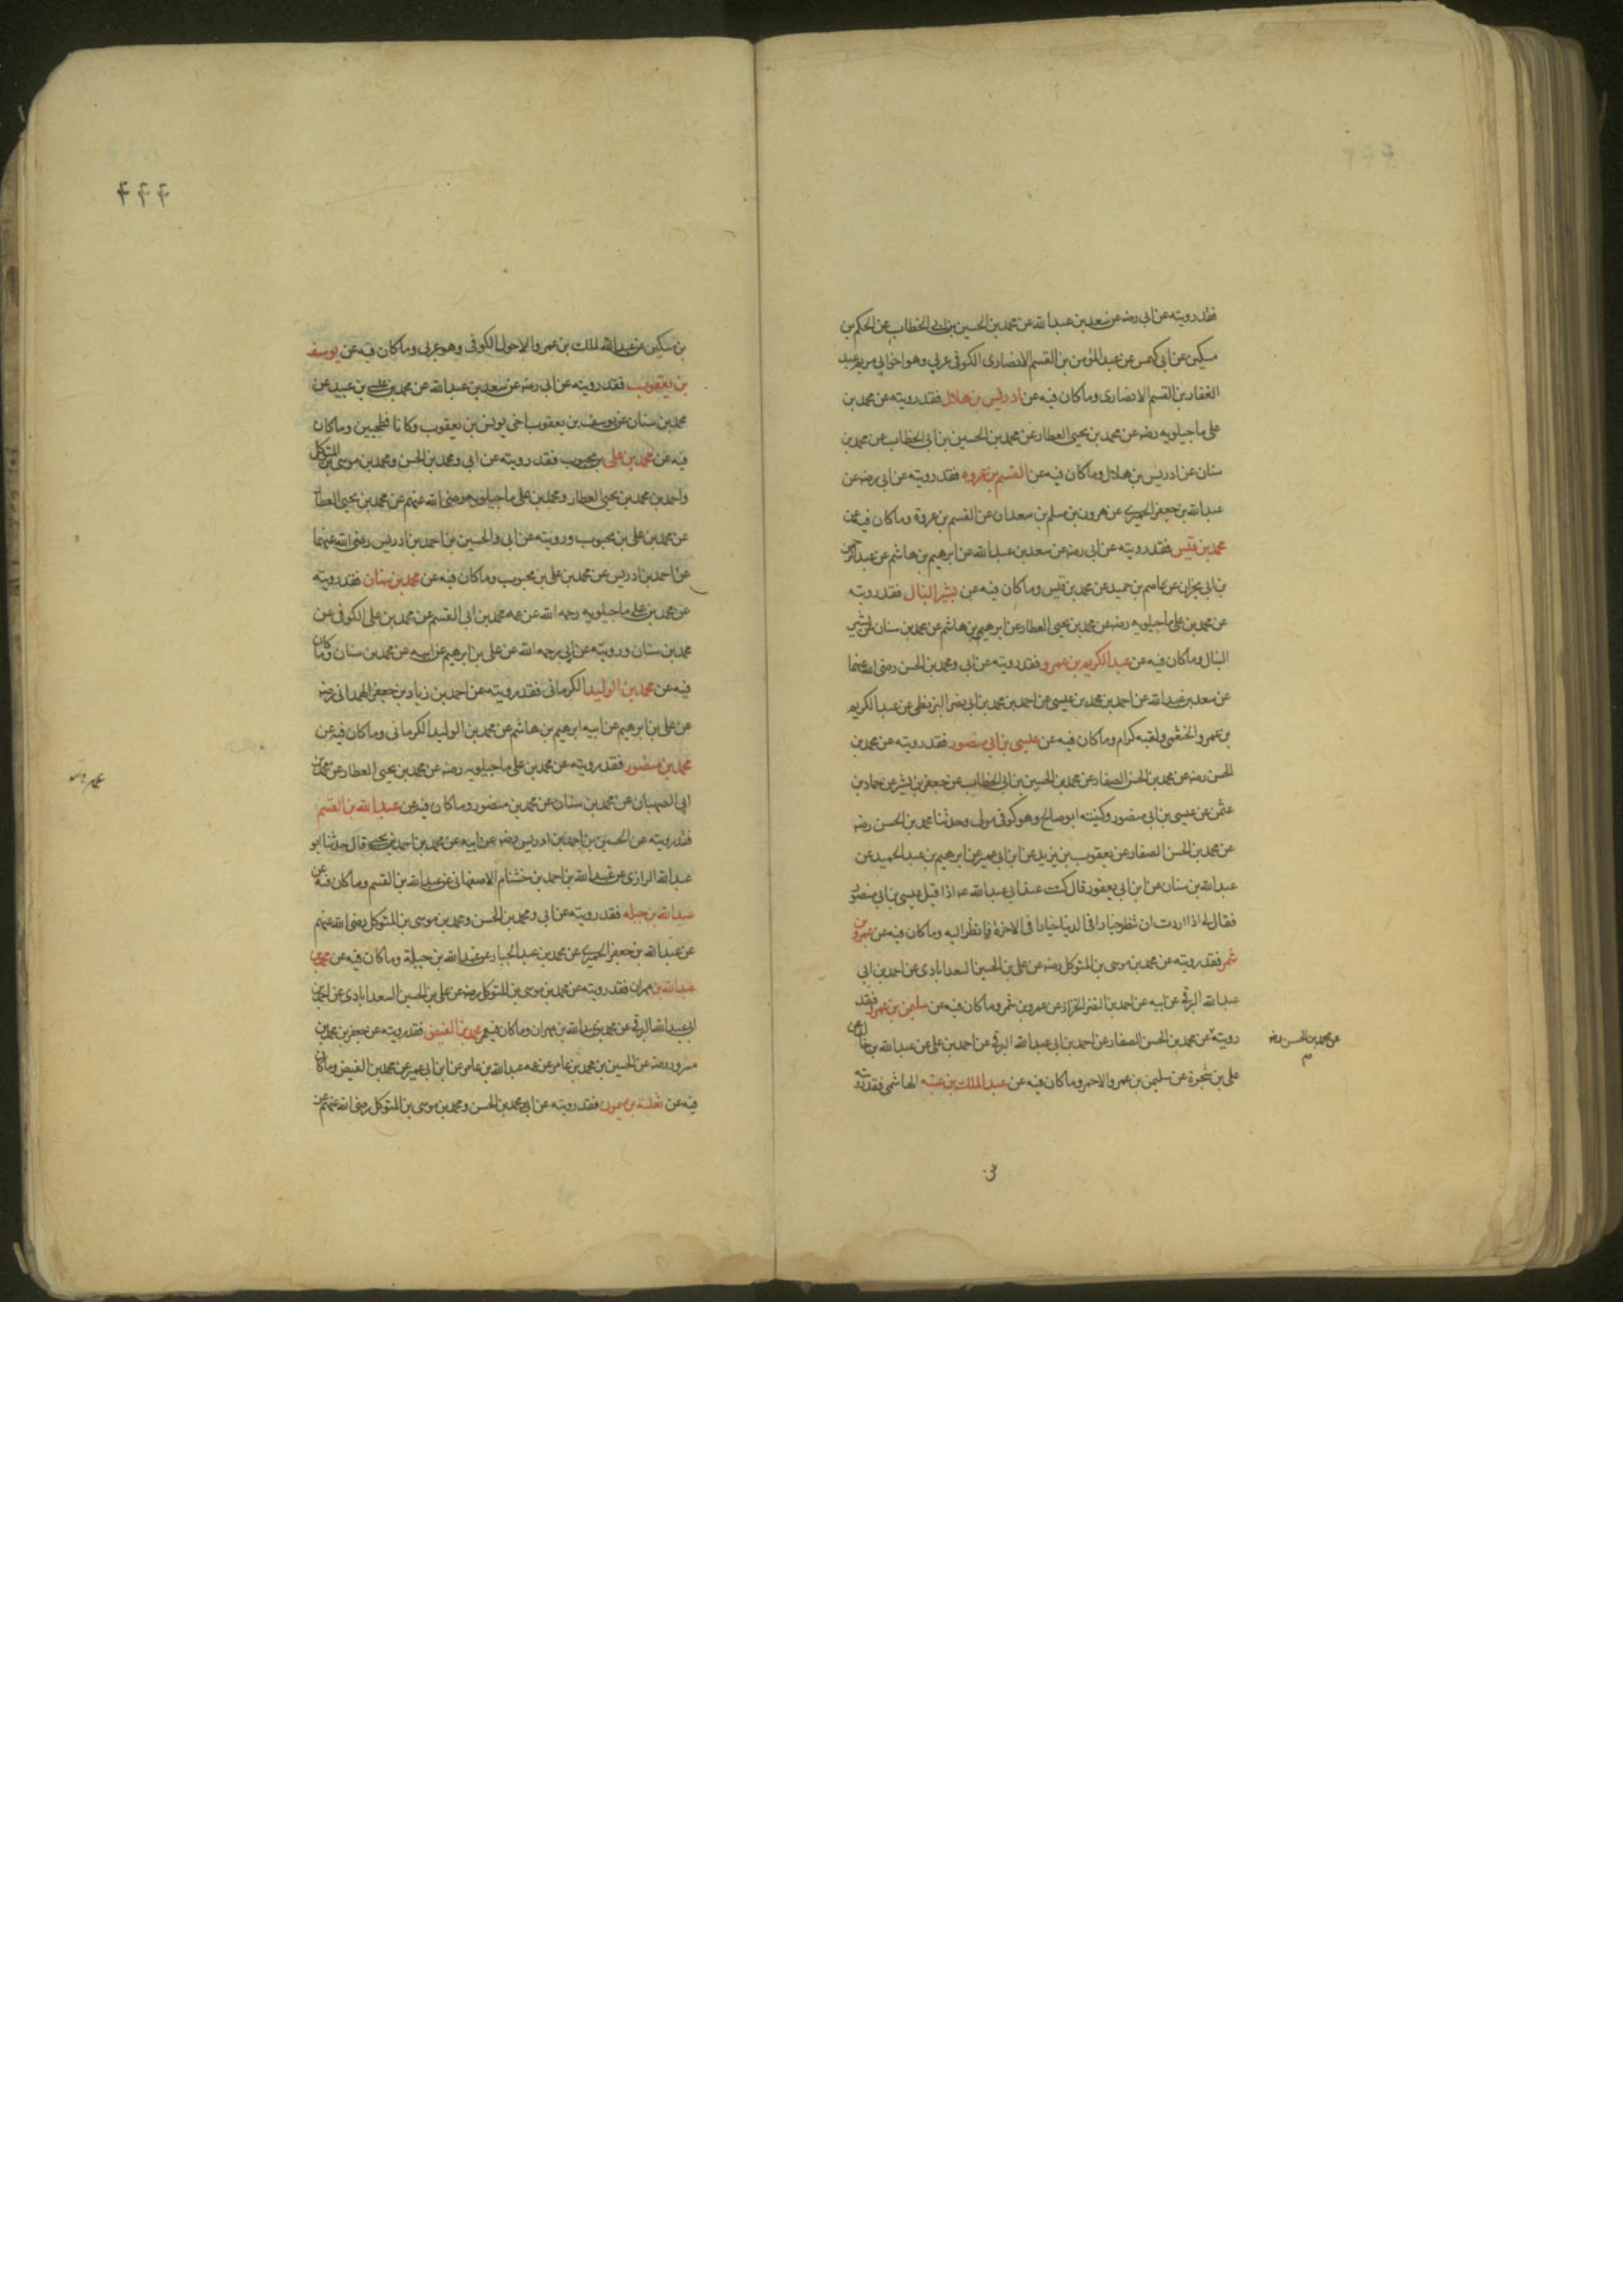 فقد رويته عن ابى رضه عن سعد بن عبد الله عن محمد بن الحسين بن ابى الخطاب عن الحكم بن
مسكين عن ابى كهمس عن عبد المؤمن بن القسم الانصارى الكوفى عربى وهو اخو ابى مريم عبد
الغفار بن القسم الانصارى وما كان فيه عن ادريس بن هلال فقد رويته عن محمد بن
على ماجيلويه رضه عن محمد بن يحيى العطار عن محمد بن الحسين بن ابى الخطاب عن محمد بن
سنان عن ادريس بن هلال وما كان فيه عن القسم بن عروه فقد رويته عن ابى رضه عن
عبد الله بن جعفر الحميرى عن هرون بن مسلم بن سعدان عن القسم بن عروة وما كان فيه عن
محمد بن قيس فقد رويته عن ابى رضه عن سعد بن عبد الله عن ابرهيم بن هاشم عن عبد الرحمن
بن ابى نجران عن عاصم بن حميد عن محمد بن قيس وما كان فيه عن بشير النبال فقد رويته
عن محمد بن على ماجيلويه رضه عن محمد بن يحيى العطار عن ابرهيم بن هاشم عن محمد بن سنان عن بشير
النبال وما كان فيه عن عبد الكريم بن عمرو فقد رويته عن ابى ومحمد بن الحسن رضى الله عنهما
عن سعد بن عبد الله عن احمد بن محمد بن عيسى عن احمد بن محمد بن ابى نصر البزنطى عن عبد الكريم
بن عمرو الخثعمى ولقبه كرام وما كان فيه عن عيسى بن ابى منصور فقد رويته عن محمد بن
الحسن رضه عن محمد بن الحسن الصفار عن محمد بن الحسين بن ابى الخطاب عن جعفر بن بشير عن حماد بن
عثمن عن عيسى بن ابى منصور وكنيته ابو صالح وهو كوفى مولى وحدثنا محمد بن الحسن رضه
عن محمد بن الحسن الصفار عن يعقوب بن يزيد عن ابن ابى عمير عن ابرهيم بن عبد الحميد عن
عبد الله بن سنان عن ابن ابى يعفور قال كنت عند ابى عبد الله ع اذا قبل عيسى بن ابى منصور
فقال له اذا اردت ان تنظر خيارا فى الدنيا خيارا فى الاخرة فانظر اليه وما كان فيه عن عمرو بن
شمر فقد رويته عن محمد بن موسى بن المتوكل رضه عن على بن الحسين السعدابادى عن احمد بن ابى
عبد الله البرقى عن ابيه عن احمد بن النضر الخزاز عن عمرو بن شمر وما كان فيه عن سليمن بن عمرو فقد
رويته عن محمد بن الحسن الصفار عن احمد بن ابى عبد الله البرقى عن احمد بن على عن عبد الله بن جبلة عن
عن محمد بن الحسن رضه
على بن شجرة عن سليمن بن عمرو الاحمر وما كان فيه عن عبد الملك بن عتبه الهاشمى فقد رويته
٤٤٤
بن مسكين عن عبد الله الملك بن عمرو الاحول الكوفى وهو عربى وما كان فيه عن يوسف
بن يعقوب فقد رويته عن ابى رضه عن سعد بن عبد الله عن محمد بن على بن عبيد عن
محمد بن سنان عن يوسف بن يعقوب اخى يونس بن يعقوب وكانا فطحيين وما كان
فيه عن محمد بن على بن محبوب فقد رويته عن ابى ومحمد بن الحسن ومحمد بن موسى بن المتوكل
واحمد بن محمد بن يحيى العطار ومحمد بن على ماجيلويه رضى الله عنهم عن محمد بن يحيى العطار
عن محمد بن على بن محبوب ورويته عن ابى والحسين بن احمد بن ادريس رضى الله عنهما
عن احمد بن ادريس عن محمد بن على بن محبوب وما كان فيه عن محمد بن سنان فقد رويته
عن محمد بن على ماجيلويه رحمه الله عن عمه محمد بن ابى القسم عن محمد بن على الكوفى عن
محمد بن سنان ورويته عن ابى رحمه الله عن على بن ابرهيم عن ابيه عن محمد بن سنان وما كان
فيه عن محمد بن الوليد الكرمانى فقد رويته عن احمد بن زياد بن جعفر الهمدانى رضه
عن على بن ابرهيم عن ابيه ابرهيم بن هاشم عن محمد بن الوليد الكرمانى وما كان فيه عن
محمد بن منصور فقد رويته عن محمد بن على ماجيلويه رضه عن محمد بن يحيى العطار عن محمد بن
ابى الصهبان عن محمد بن سنان عن محمد بن منصور وما كان فيه عن عبد الله بن القسم
فقد رويته عن الحسين بن احمد بن ادريس رضه عن ابيه عن محمد بن احمد بن يحيى قال حدثنا ابو
عبد الله الرازى عن عبد الله بن احمد بن خشنام الاصفهانى عن عبد الله بن القسم وما كان فيه عن
عبد الله بن جبله فقد رويته عن ابى ومحمد بن الحسن ومحمد بن موسى بن المتوكل رضى الله عنهم
عن عبد الله بن جعفر الحميرى عن محمد بن عبد الجبار عن عبد الله بن جبلة وما كان فيه عن محمد بن
عبد الله بن مهران فقد رويته عن محمد بن موسى بن المتوكل رضه عن على بن الحسين السعدابادى عن احمد بن
ابى عبد الله البرقى عن محمد بن عبد الله بن مهران وما كان فيه عن محمد بن الفيض فقد رويته عن جعفر بن محمد بن
مسرور رضه عن الحسين بن محمد بن عامر عن عمه عبد الله بن عامر عن ابن ابى عمير عن محمد بن الفيض وما كان
فيه عن ثعلبة بن ميمون فقد رويته عن ابى ومحمد بن الحسن ومحمد بن موسى بن المتوكل رضى الله عنهم عن